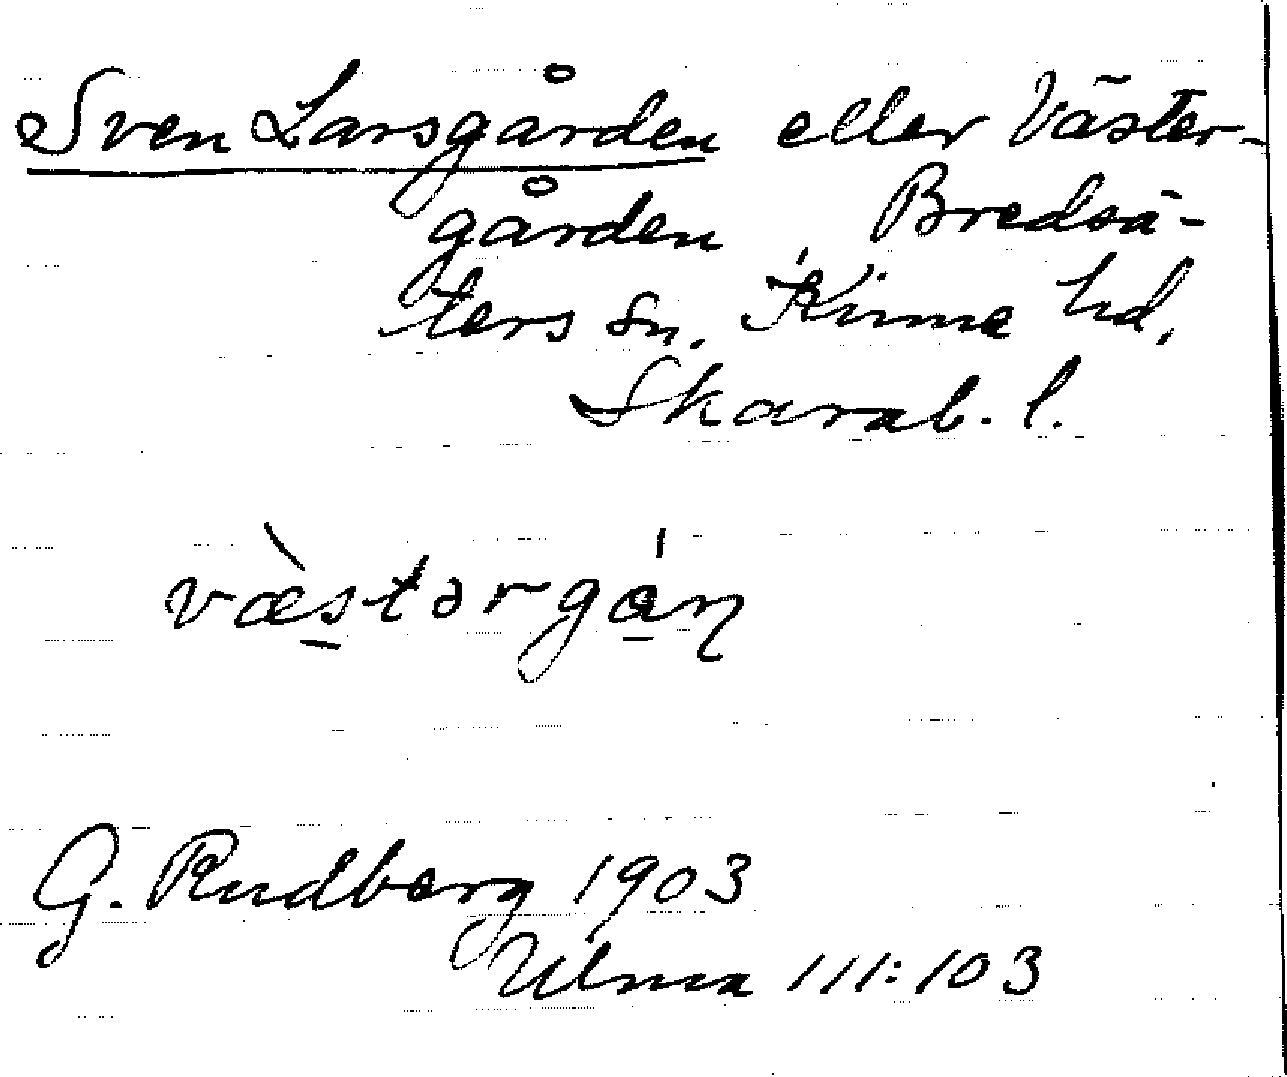 Sven Larsgården eller Väster-
gården Bredsä-
ters sn. Kinne hd.
Skarab. l.
væ̀stərgán
G. Rudberg 1903
Ulma 111:103